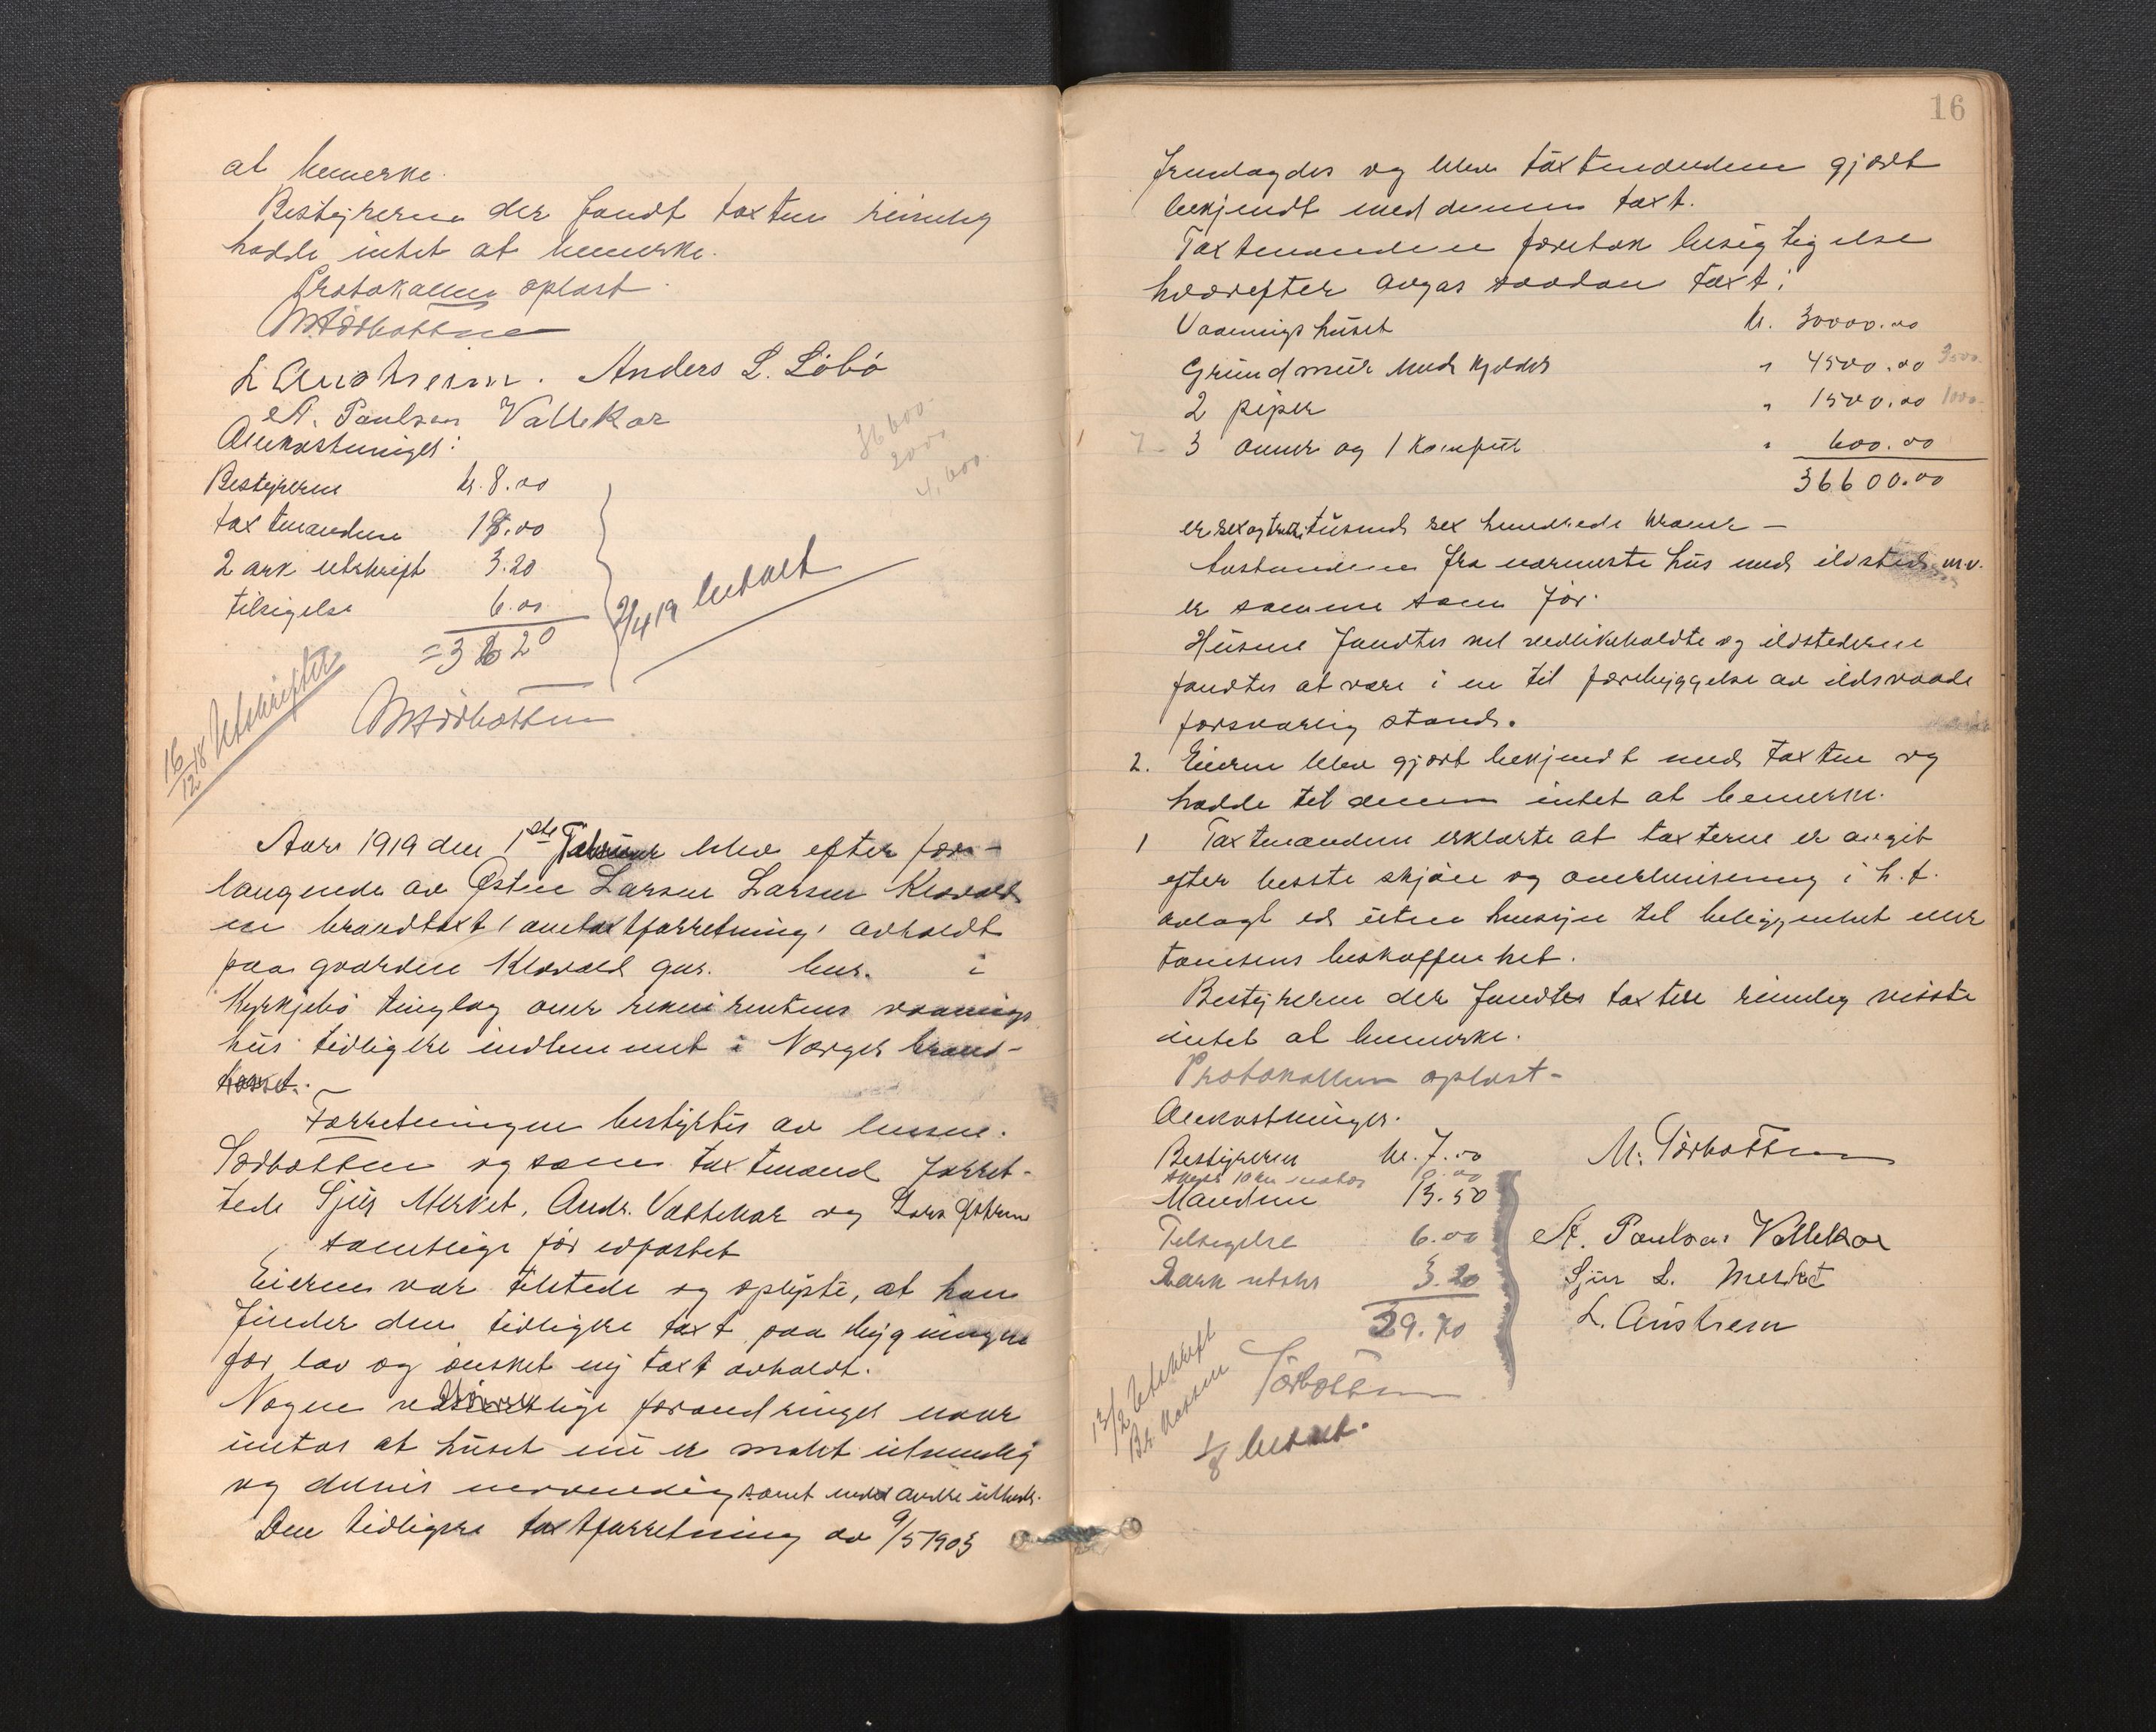 at bemerke.
Bestyreren der fandt taxten rimelig
hadde intet at bemerke.
Protokollen oplæst
M Sörbotten
L Austrheim. Anders L. Löbö
A. Paulsen Vallekar
Omkostninger:
Bestyreren kr. 8.00
taxtmændene 18.00
2 ark utskrift 3.20
tilsigelse 6.00
= 3 20
2/4 19 betalt
MSörbotten
16/12 18 Utskrifter
36600.
2000
4,600.
Aar 1919 den 1ste Februar blev efter for-
langende av Østen Larsen Larsen Klævold
en brandtaxt (omtaxtforretning) avholdt
paa gaarden Klævold gnr. bnr. i
Kyrkjebö tinglag over rekvirentens vaanings
hus tidligere indlemmet i Norges brand-
kasse. –
Forretningen bestyrtes av lensm.
Sörbotten og som taxtmænd forret-
tede Sjur Merket, Andr. Vallekar og Lars Østrem
samtlige før edfæstet
Eieren var tilstede og oplyste, at han
finder den tidligere taxt paa bygningen
for lav og ønsket ny taxt avholdt.
Nogen væsentlige forandringer
untas at huset nu er malt utvendig
og delvis indvendig samt med andre utbedr.
Den tidligere taxtforretning av 9/5 1903
16
fremlagdes og blev taxtmændene gjort
bekjendt med denne taxt.
Taxtmændene foretok besigtigelse
hvorefter avgas saadan taxt:
Vaaningshuset kr. 30000.00
Grundmur med kjelder " 4500.00 3500.
2 piper " 1500.00 1000.
3 ovner og 1 komfur " 600.00
36600.00
er sex og tretti tusend sex hundrede kroner –
Avstanden fra nærmeste hus med ildsted m.v.
er samme som før.
Husene fandtes vel vedlikeholdte og ildstederne
fandtes at være i en til forebyggelse av ildsvaade
forsvarlig stand.
2. Eieren blev gjort bekjendt med taxten og
hadde til denne intet at bemerke.
1 Taxtmændene erklærte at taxterne er avgit
efter besste skjøn og overbevisning i h.t.
avlagt ed uten hensyn til beliggenhet eller
tomtens beskaffenhet.
Bestyreren der fandtes taxten rimelig visste
intet at bemerke.
Protokollen oplæst –
Omkostninger.
Bestyreren kr. 7.00
Mændene 13.50
Tilsigelse 6.00
2 ark utskr 3.20
29.70
M. Sörbotten
A. Paulsen Vallekar
Sjur L. Merket
L. Austrheim
Sörbotten
13/2 Utskrift
Br. kassen
1/8 betalt.